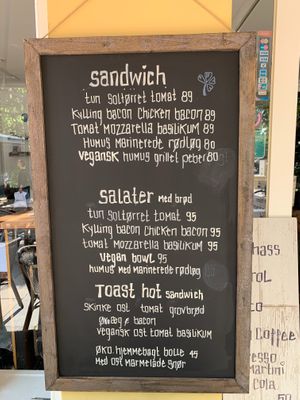 sandwich
tun soltørret tomat 89
Kylling bacon Chicken bacon 89
Tomat mozzarella basilikum 89
Humus marinerede rødløg 80
vegansk humus grillet peber 80
salater med brød
tun soltørret tomat 95
Kylling bacon Chicken bacon 95
tomat mozzarella basilikum 95
vegan bowl 95
humus med marinerede rødløg
Toast hot sandwich
skinke ost tomat grovbrød
æg & bacon
vegansk ost tomat basilikum
øko hjemmebagt bolle 45
med ost marmelade smør
hass
Coffee
esso
martini
Cola
50